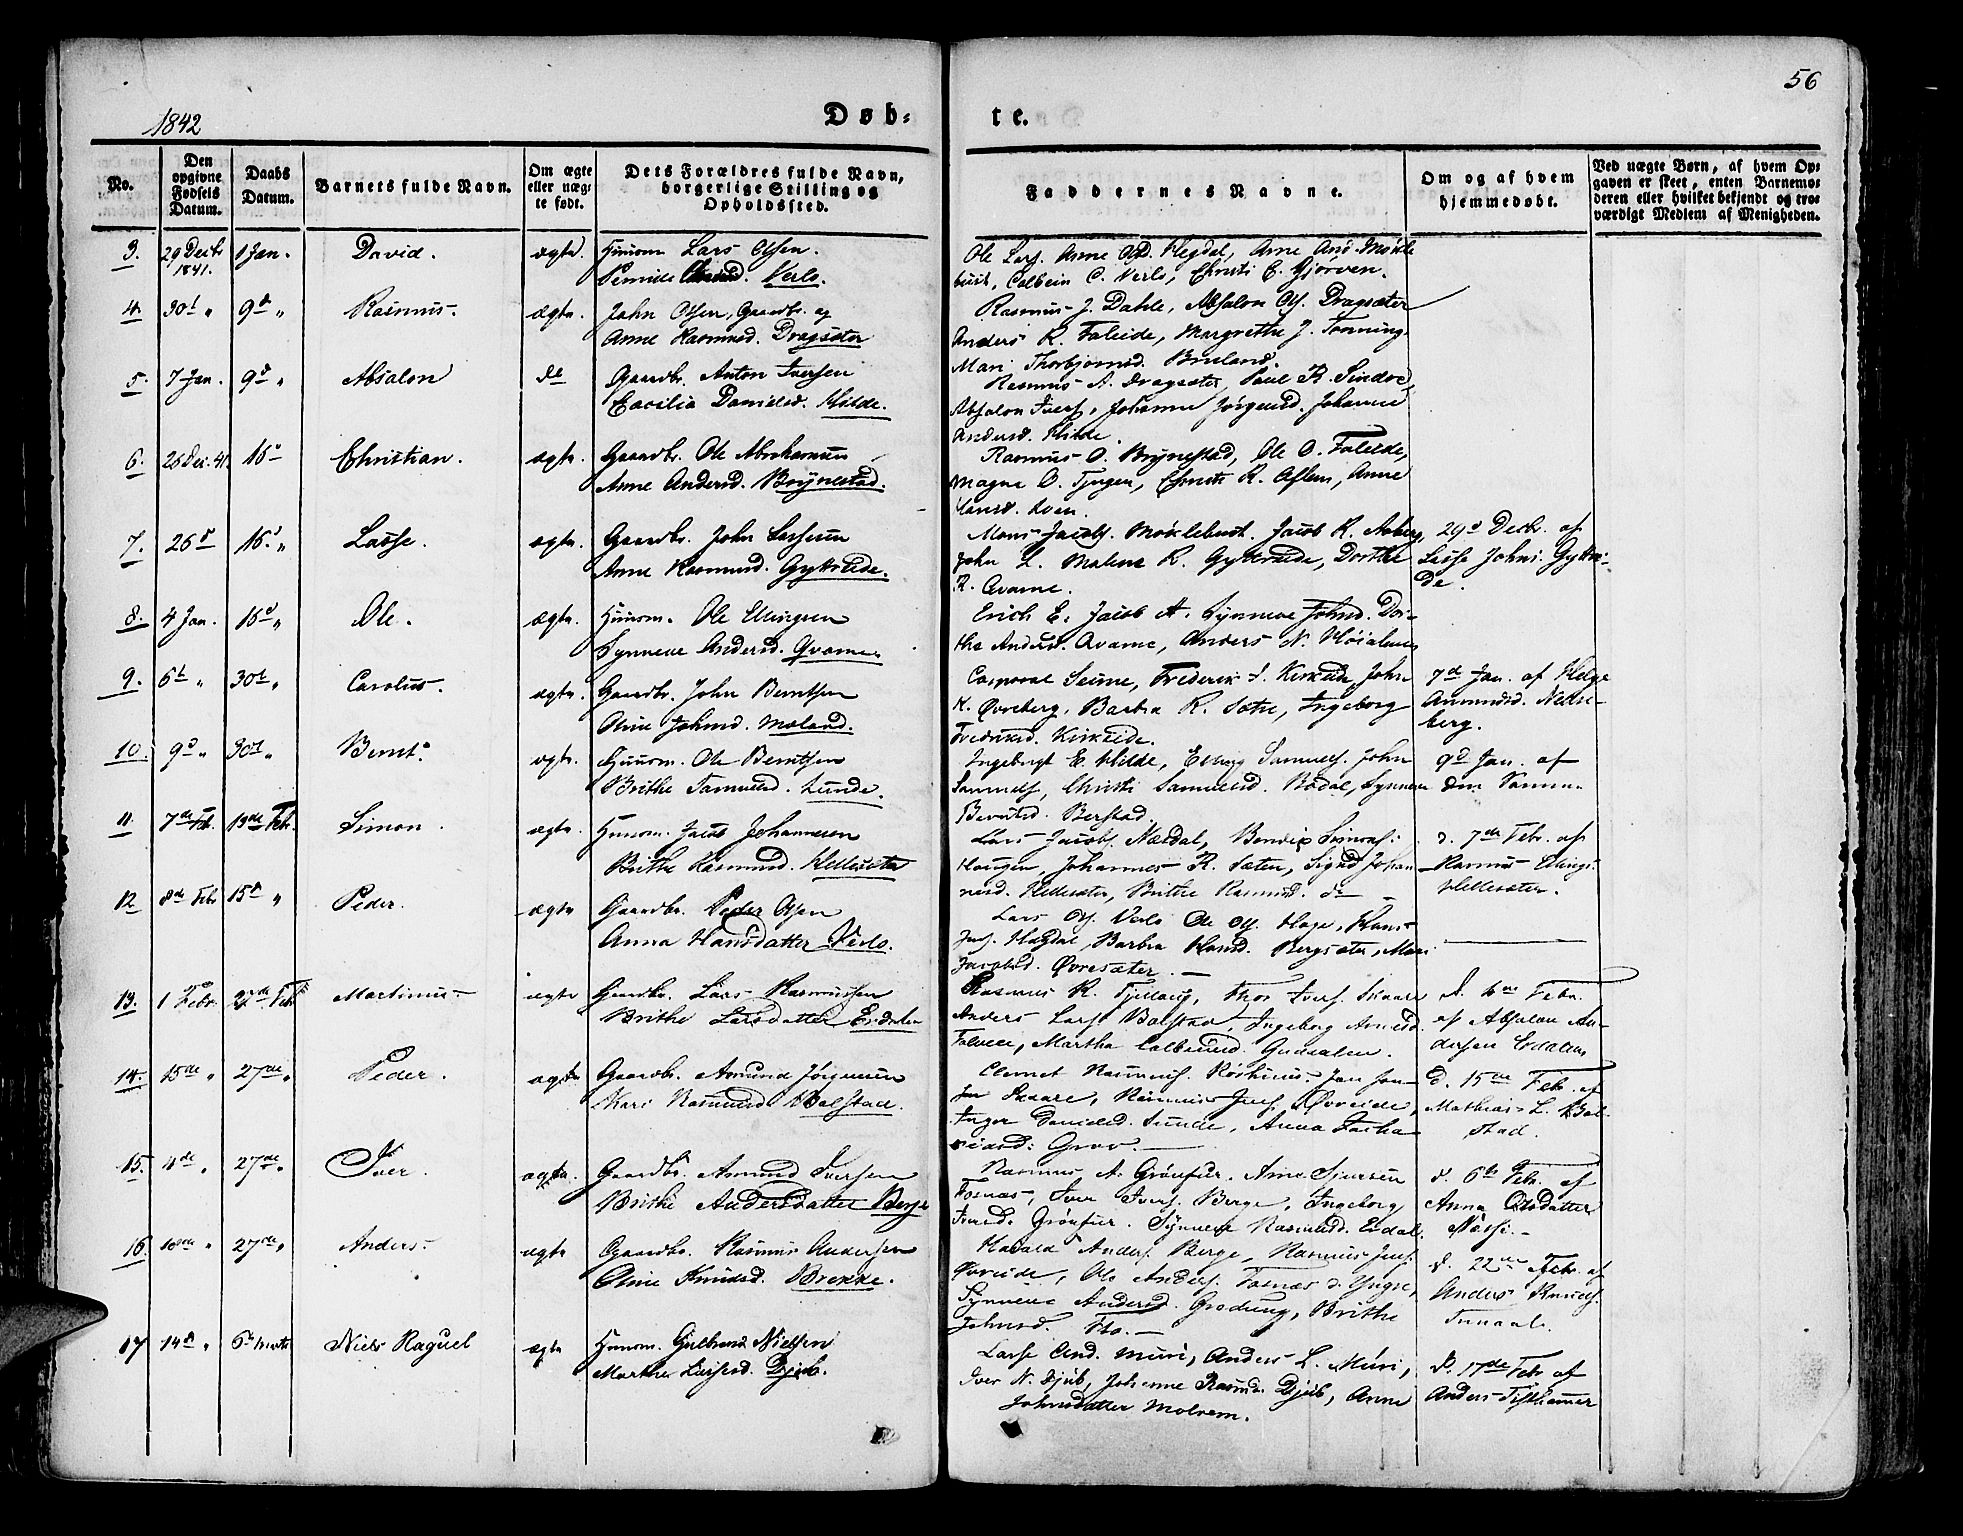 56
1842
Døb-
te.
No.
Den opgivne Fødsels Datum.
Daabs Datum.
Barnets fulde Navn.
Om ægte eller uæg-
te født.
Dets Forældres fulde Navn,
borgerlige Stilling og
Opholdssted.
Faddernes Navne.
Om og af hvem
hjemmedøbt.
Ved uægte Børn, af hvem Op-
gaven er skeet, enten Barnemo-
deren eller hvilket bekjendt og tro-
værdigt Medlem af Menigheden.
3. 29 Decbr 1841. 1 Jan. David. ægte. Huusm. Lars Olsen.
Verlo.
Ole Lars. Anne Hegdal, Anne
Colbein C. Verlo, Christi E. Gjørven.
4. 30t " 9d " Rasmus. ægte. John Olsen, Gaardbr. og
Anne Rasmusd. Dragsæter
Rasmus J. Dahle, Absalon Ols. Dragsæter
Anders R. Faleide, Margrethe J. Tonning.
Mari Thorbjørnsd. Bruland.
5. 7 Jan. 9d " Absalon do Gaardbr. Anton Iversen
Cecilia Danielsd. Hilde.
Rasmus A. Dragsæter, Paul R. Sindre,
Absalon Ivers. Johanne Jørgensd. Johanne
Andersd. Hilde.
6. 26 Dec. 41. 16d Christian. ægte. Gaardbr. Ole Abrahamsen
Anne Andersd. Brynestad.
Rasmus O. Brynestad, Ole O. Faleide,
Magne O. Tjugen, Christi R. Aflem, Anne
Hansd. Loen.
7. 26d 16d " Lasse. ægte. Gaardbr. John Lassesen
Anne Rasmusd. Gyttreide.
Mons Jacobs. Møklebust. Jacob R. Aaberg,
John L. Malene R. Gyttreide, Dorthe
R. Qvame.
29d Decbr. af
Lasse Johns. Gyttrei-
de.
8. 4 Jan. 16d " Ole. ægte. Huusm. Ole Ellingsen
Synneve Andersd. Qvame.
Erich E. Jacob A. Synneve Johnsd. Dor-
the Andersd. Qvame, Anders N.
9. 6t " 30te " Carolus. ægte. Gaardbr. John Berntsen
Oline Johnsd. Moland.
Corporal Seime, Frederik J. Kirkeide, John
K. Øvreberg, Barbra R. Sætre, Ingeborg
Fredriksd. Kirkeide.
7de Jan. af Helge
Aamundsd. Nedre-
berg.
10. 9d " 30te " Bernt. ægte. Huusm. Ole Berntsen
Brithe Samuelsd. Lunde.
Ingebrigt E. Hilde, Samuels. John
Samuels, Christi Samuelsd. Bødal, Synneve
Berntsd. Berstad.
9d Jan. af
den Samme.
11. 7de Feb. 13de Febr. Simon. ægte. Huusm. Jacob Johannesen
Brithe Rasmusd. Hellesæter
Lars Jacobs. Nesdal, Bendix
Haugen, Johannes R. Sæten, Sigrid Johan-
nesd. Hellesæter, Brithe Rasmusd. do
d. 7de Febr. af
Rasmus Ellings.
Hellesæter.
12. 8de Febr 13d " Peder. ægte Gaardbr. Peder Olsen
Anna Hansdatter Verlo.
Lars Ols. Verlo Ole Ols. Hage, Hans
Jens. Hegdal, Barbra Hansd. Bergsæter, Mari
Jacobsd. Øvresæter.
13. 1 Febr. 27de Febr Martinus. ægte Gaardbr. Lars Rasmussen
Brithe Larsdatter Erdalen
Rasmus R. Tjellaug, Thor Ivers.
Anders Lars. Bolstad, Ingeborg Arnesd.
Faleide, Martha Colbeinsd. Gudsalen.
d. 1ste Febr.
af Absalon An-
dersen Erdalen
14. 15de " 27de " Peder. ægte Gaardbr. Asmund Jørgensen
Kari Rasmusd Bolstad.
Clemet Rasmus.
Rasmus Jens. Øvreide,
Inger Danielsd. Sunde, Anna Zacha-
riasd: Grov.
d. 15de Febr. af
Mathias L. Bol-
stad.
15. 4de " 27de " Iver. ægte. Gaardbr. Asmund Iversen
Brithe Andersdatter Berge
Rasmus A. Grønfur, Arne Sjursen
Fosnæs, Iver Ivers. Berge, Ingeborg
Iversd. Grønfur. Synneve Rasmusd. Erdal.
d. 6te Febr. af
Anna Olsdatter
16. " 27de " Anders. ægte Gaardbr. Rasmus Andersen
Oline Knudsd. Brekke.
Harald Anders. Berge, Rasmus Jens.
Øvreide, Ole Anders. Fosnæs d. Yngre,
Synneve Andersd. Grodung, Brithe
Johnsd. Flo.
d. 22de Febr. af
Anders Knuds.
17 14d " 6te Marts Niels Raguel ægte Huusm. Gulbrand Nielsen
Marthe Lassesd. Djub.
Lasse And. Muri, Anders L. Muri,
Iver N. Djub, Johanne Rasmd. Djub, Anne
Johnsdatter Molvem.
d. 17de Febr af
Anders Fosthammer